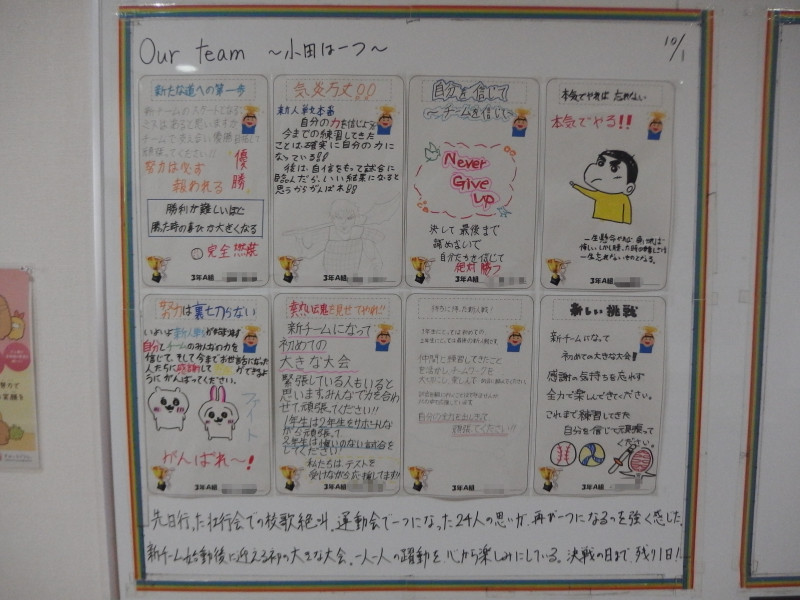 Our team ～小田は一つ～
10/1
新たな道への第一歩
新チームのスタートとなる
ミスはあると思いますが
チームで支え合い優勝目指して
頑張ってください!!
努力は必ず
報われる
優勝
勝利が難しいほど
勝った時の喜びが大きくなる
完全燃焼
3年A組
気炎万丈!!
新人戦本番
自分の力を信じよう
今までの練習してきた
ことは、確実に自分の力に
なっている!!
後は、自信をもって試合に
臨んだら、いい結果になると
思うからがんばれ!!
3年A組
自分を信じて
チームを信じて
Never
Give
up
決して最後まで
諦めないで
自分たちを信じて
絶対勝つ
3年A組
本気でやれば 忘れない
本気でやる!!
3年A組
努力は裏切らない
いよいよ新人戦が始まります
自分とチームのみんなの力を
信じて、そして今までお世話になった
人たちに感謝して
ようにがんばってください。
ファイト
がんばれ～!
3年A組
熱い魂を見せてやれ!!
新チームになって
初めての
大きな大会
緊張している人もいると
思いますが、みんなで力を合わ
せて頑張ってください!!
1年生は2年生をサポートしな
がら頑張って
2年生は悔いのない試合を
してください
私たちは、テストを
受けながら応援してます!!
3年A組
待ちに待った新人戦!
仲間と練習してきたこと
を活かし、チームワークを
大切にし、楽しんで
自分の全力を出しきって
頑張ってください!!
3年A組
新しい挑戦
新チームになって
初めての大きな大会!!
感謝の気持ちを忘れず
全力で楽しんできてください。
これまで練習してきた
自分を信じて頑張って
ください。
3年A組
先日行った壮行会での校歌絶叫、運動会で一つになった24人の思いが、再び一つになるのを強く感じた。
新チーム始動後に迎える初の大きな大会。一人一人の躍動を心から楽しみにしている。決戦の日まで、残り1日!